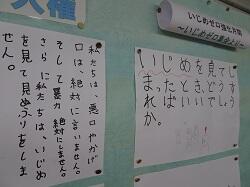 人権
私たちは、悪口やかげ
口は絶対に言いません。
そして暴力絶対にしません。
さらに私たちは、いじめ
を見て見ぬふりをしま
せん。
いじめゼロ強化月間
～いじめゼロ集会より～
いじめを見てし
まったとき、どうす
ればいいでしょう
か。